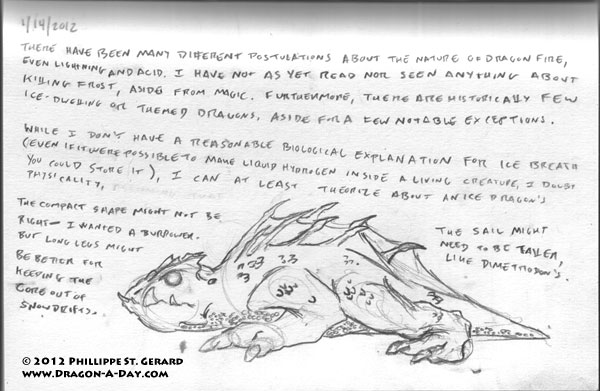 1/14/2012
THERE HAVE BEEN MANY DIFFERENT POSTULATIONS ABOUT THE NATURE OF DRAGON FIRE,
EVEN LIGHTNING AND ACID. I HAVE NOT AS YET READ NOR SEEN ANYTHING ABOUT
KILLING FROST, ASIDE FROM MAGIC. FURTHERMORE, THERE ARE HISTORICALLY FEW
ICE-DWELLING OR THEMED DRAGONS, ASIDE FOR A FEW NOTABLE EXCEPTIONS.
WHILE I DON'T HAVE A REASONABLE BIOLOGICAL EXPLANATION FOR ICE BREATH
(EVEN IF IT WERE POSSIBLE TO MAKE LIQUID HYDROGEN INSIDE A LIVING CREATURE, I DOUBT
YOU COULD STORE IT), I CAN AT LEAST THEORIZE ABOUT AN ICE DRAGON'S
PHYSICALITY,
THE COMPACT SHAPE MIGHT NOT BE
RIGHT— I WANTED A BURROWER.
BUT LONG LEGS MIGHT
BE BETTER FOR
KEEPING THE
CORE OUT OF
SNOWDRIFTS.
THE SAIL MIGHT
NEED TO BE TALLER,
LIKE DIMETRODON'S.
© 2012 PHILLIPPE ST. GERARD
WWW.DRAGON-A-DAY.COM